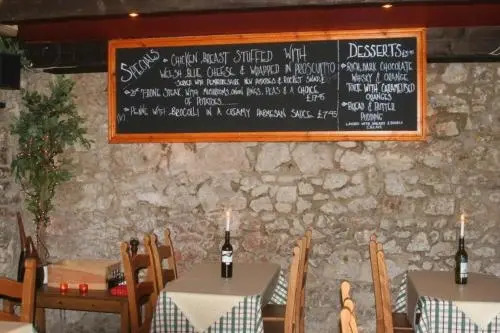 SPECIALS
• CHICKEN BREAST STUFFED WITH
WELSH BLUE CHEESE & WRAPPED IN PROSCUITTO
SERVED WITH PEMBROKESHIRE NEW POTATOES & ROCKET SALAD
T-BONE STEAK WITH MUSHROOMS, ONION RINGS, PEAS & A CHOICE
OF POTATOES..... £17.95
(V) PENNE WITH BROCOLLI IN A CREAMY PARMESAN SAUCE £7.95
DESSERTS
RICH, DARK CHOCOLATE
WHISKY & ORANGE
TORTE WITH CARAMELISED
ORANGES
BREAD & BUTTER
PUDDING
CREAM